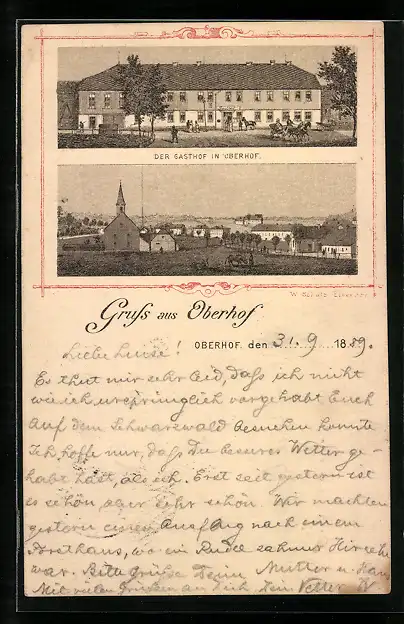 DER GASTHOF IN OBERHOF.
W. Schulz
Gruſs aus Oberhof
OBERHOF, den 31.9 1889.
Liebe Luise!
Es thut mir sehr leid, daſs ich nicht
wie ich ursprünglich vorgehabt Euch
auf dem Schwarzwald besuchen konnte
Ich hoffe nur, daſs Du besseres Wetter ge-
habt hast, als ich. Erst seit gestern ist
es schön, aber sehr schön. Wir machten
gestern einen Ausflug nach einem
Forsthaus, wo ein Rudel zahmer Hirsche
war. Bitte grüſse Deine Mutter u.
Mit vielen Grüſsen an Dich Dein Vetter